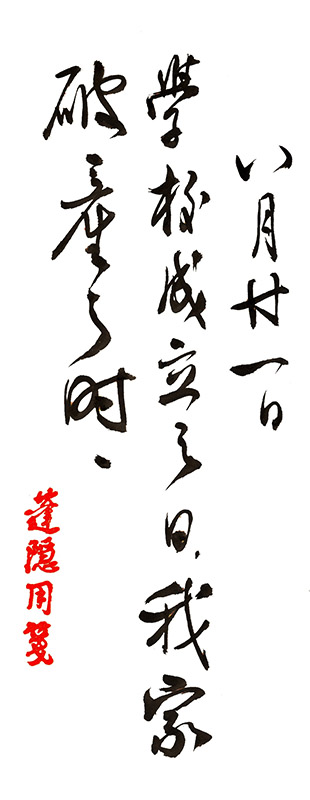 八月廿一日
學校成立之日，我家
破產之时、
蓬隱用箋